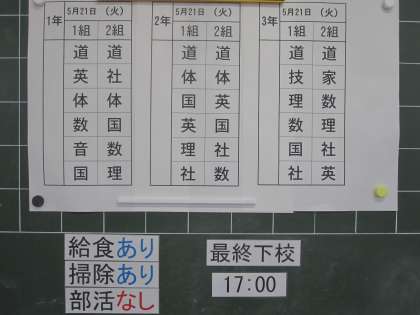 1年 5月21日 (火)
1組 2組
道 道
英 社
体 体
数 国
音 数
国 理
2年 5月21日 (火)
1組 2組
道 道
体 体
国 英
英 国
理 理
社 数
3年 5月21日 (火)
1組 2組
道 道
技 家
理 数
数 理
国 社
社 英
給食あり
掃除あり
部活なし
最終下校
17:00